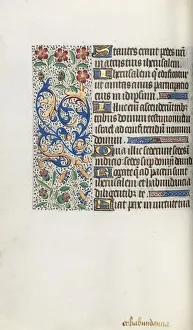 Stantes erant pedes nri
in atriis tuis iherusalem
Iherusalem que edificatur
ut civitas cuius participatio
eius in idipsum
Illuc enim ascenderunt tri
bus tribus domini testimonium
israel ad confitendum nomini
domini
Quia illic sederunt sedes
in iudicio sedes super domum david
Rogate que ad pacem sunt
iherusalem et habundancia
diligentibus te
Fiat pax in virtute tua
et habundancia